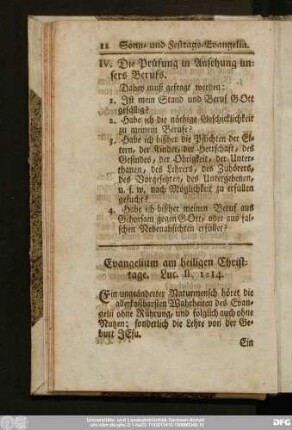 12 Sonn- und Festtags-Evangelia.
IV. Die Prüfung in Ansehung un-
sers Berufs.
Dabey muß gefragt werden:
1. Ist mein Stand und Beruf GOtt
gefällig?
2. Habe ich die nöthige Geschicklichkeit
zu meinem Berufe?
3. Habe ich bisher die Pflichten der El-
tern, der Kinder, der Herrschaft, des
Gesindes, der Obrigkeit, der Unter-
thanen, des Lehrers, des Zuhörers,
des Vorgesetzten, des Untergebenen,
u. s. w. nach Möglichkeit zu erfüllen
gesucht?
4. Habe ich bisher meinen Beruf aus
Gehorsam gegen GOtt, oder aus fal-
schen Nebenabsichten erfüllet?
Evangelium am heiligen Christ-
tage. Luc. II, 1-14.
Ein ungeänderter Naturmensch höret die
allerkostbarsten Wahrheiten des Evan-
gelii ohne Rührung, und folglich auch ohne
Nutzen; sonderlich die Lehre von der Ge-
burt JEsu.
Ein
DFG